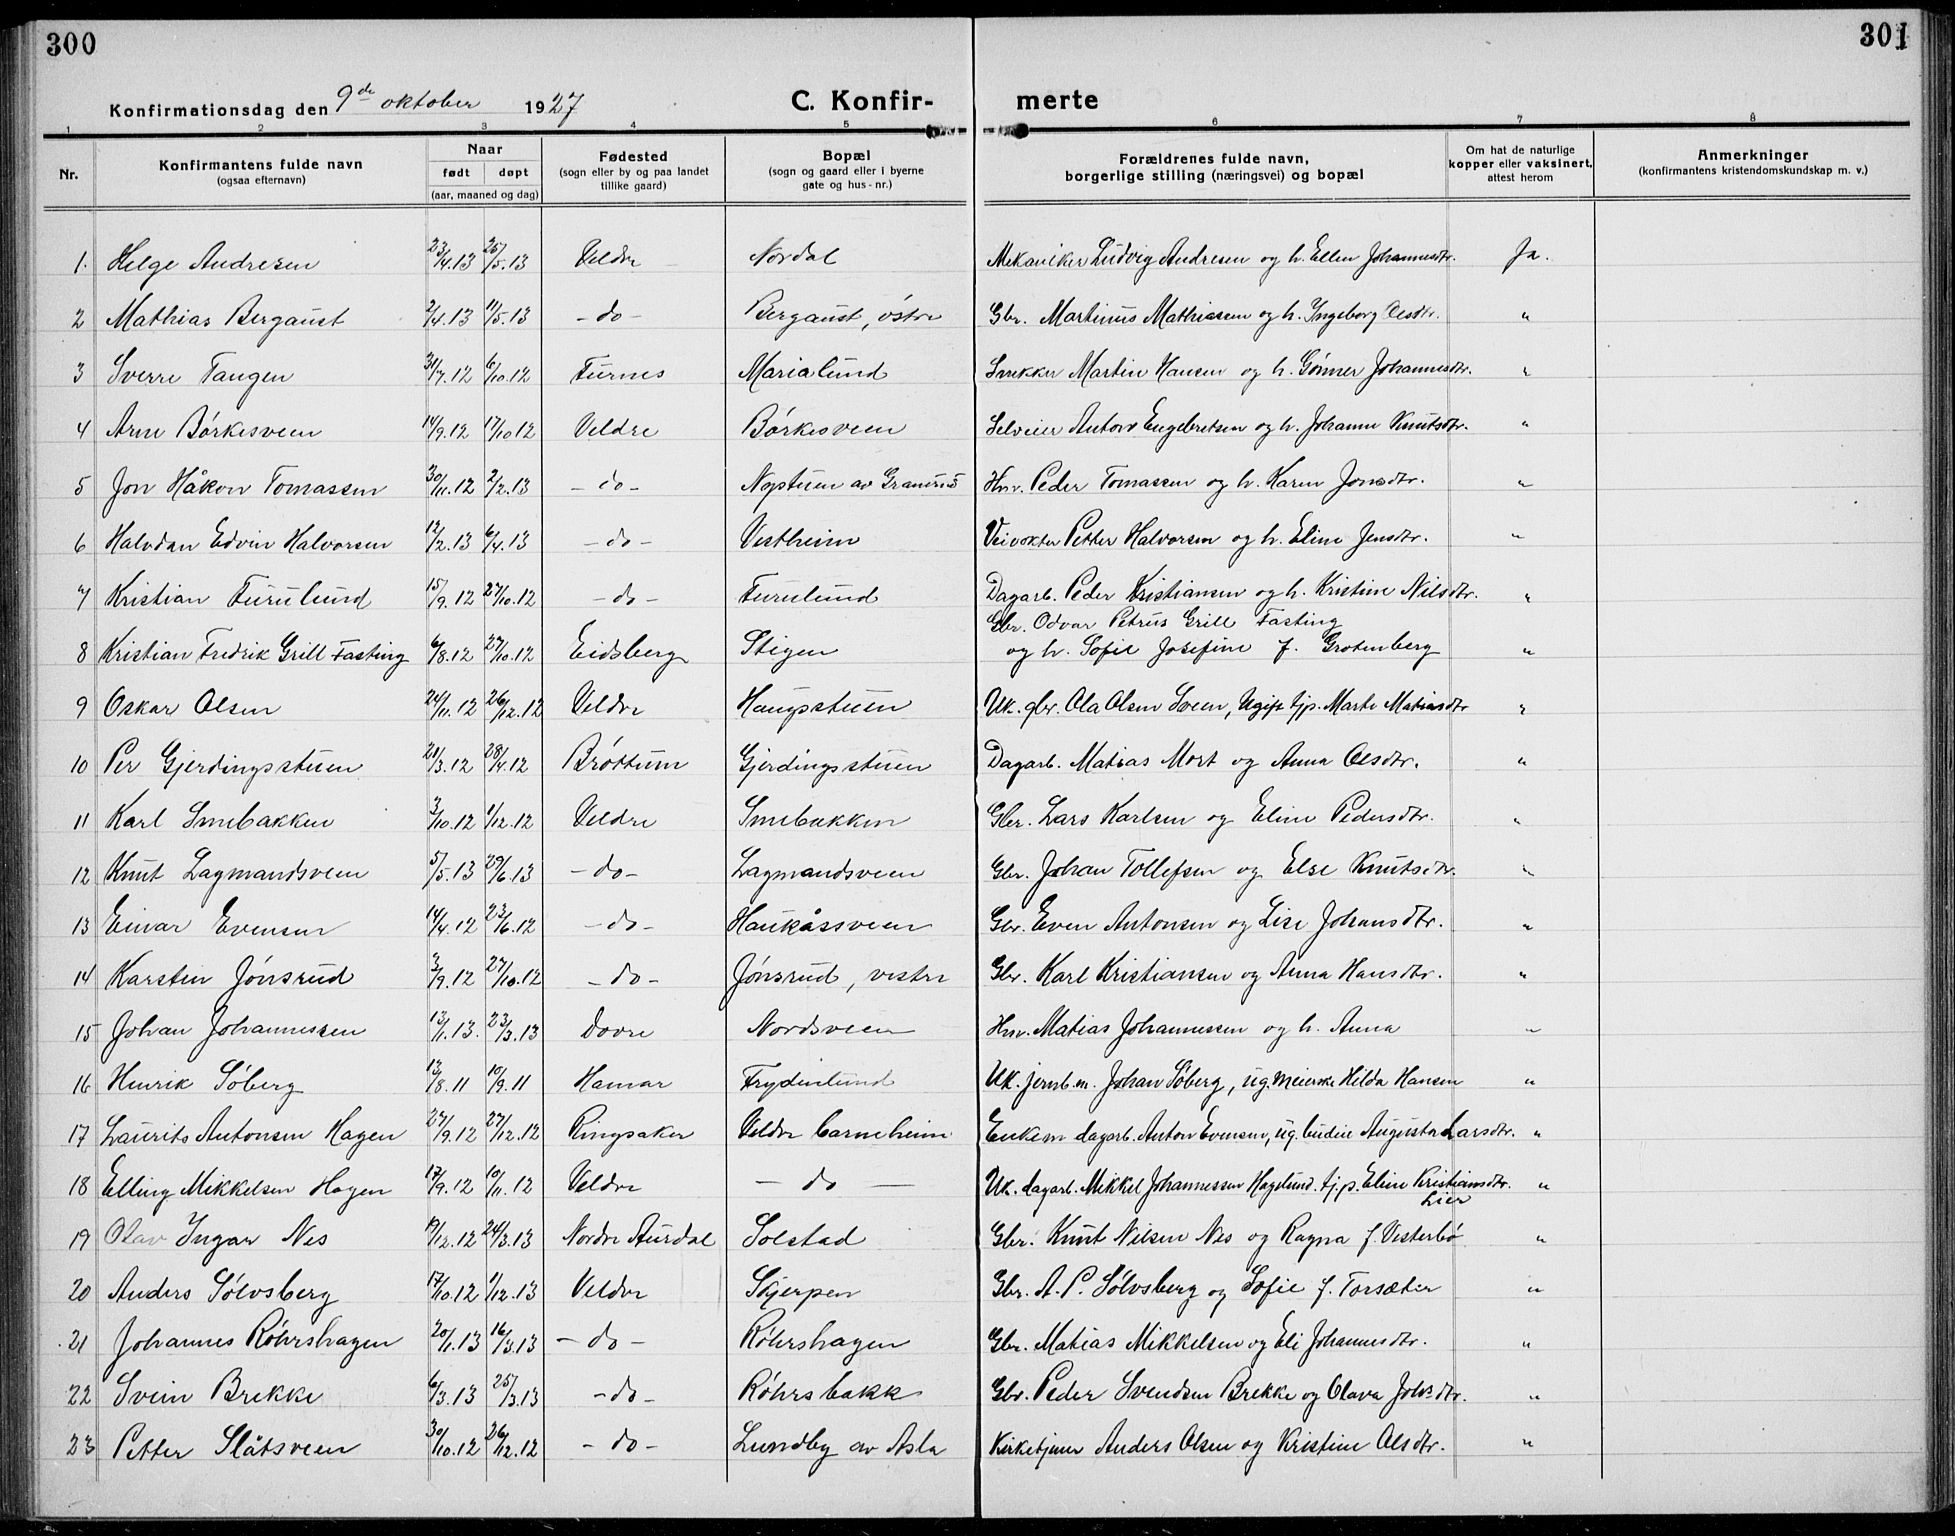 300
301
Konfirmationsdag den 9de oktober 1927
C. Konfir-
merte
1 2 3 4 5 6 7 8
Nr.
Konfirmantens fulde navn
(ogsaa efternavn)
Naar
født døpt
(aar, maaned og dag)
Fødested
(sogn eller by og paa landet
tillike gaard)
Bopæl
(sogn og gaard eller i byerne
gate og hus-nr.)
Forældrenes fulde navn,
borgerlige stilling (næringsvei) og bopæl
Om hat de naturlige
kopper eller vaksinert,
attest herom
Anmerkninger
(konfirmantens kristendomskundskap m. v.)
1. Helge Andresen 23/4.13 25/5.13 Veldre Nordal Mekaniker Ludvig Andresen og h. Ellen Johannesdtr. Ja.
2 Mathias Bergaust 2/4.13 11/5.13 -do- Bergaust, østre Gbr. Martinus Mathiassen og h. Ingeborg Olsdtr. "
3 Sverre Tangen 31/7.12 6/10.12 Furnes Marialund Snekker Martin Hansen og h. Gønner Johannesdtr. "
4 Arne Børkesveen 14/9.12 17/10 12 Veldre Børkesveen Selveier Anton Engebretsen og h. Johanne Knutsdtr. "
5 Jon Håkon Tomassen 30/11.12 2/2.13 -do- Nystuen av Hnv. Peder Tomassen og h. Karen Jonsdtr. "
6 Halvdan Edvin Halvorsen 12/2.13 6/4.13 -do- Vestheim Veivokter Petter Halvorsen og h. Eline Jensdtr. "
7 Kristian Furulund 15/9.12 27/10.12 -do- Furulund Dagarb. Peder Kristiansen og h. Kristine Nilsdtr. "
Gbr. Odvar Petrus Grill Fasting
8 Kristian Fredrik Grill Fasting 6/8.12 27/10.12 Eidsberg Stigen og h. Sofie Josefine f. Grotenberg "
9 Oskar Olsen 24/11.12 26/12.12 Veldre Haugstuen Uk. gbr. Ola Olsen Sveen, Ugift tjp. Marte Matiasdtr "
10 Per Gjerdingsstuen 21/3.12 28/4.12 Brøttum Gjerdingsstuen Dagarb. Matias Mort og Anna Olsdtr. "
11 Karl Smebakken 3/10.12 1/12.12 Veldre Smebakken Gbr. Lars Karlsen og Eline Pedersdtr. "
12 Knut Lagmandsveen 5/5.13 29/6.13 -do- Lagmandsveen Gbr. Johan Tollefsen og Else Knutsdtr. "
13 Einar Evensen 14/4.12 23/6.12 -do- Haukåssveen Gbr. Even Antonsen og Lise Johansdtr. "
14 Karsten Jønsrud 3/9.12 27/10.12 -do- Jønsrud, vestre Gbr. Karl Kristiansen og Anna Hansdtr. "
15 Johan Johannessen 13/1.13. 23/3.13 Dovre Nordsveen Hnv. Matias Johannessen og h. Anna "
16 Henrik Søberg 13/8.11 10/9.11 Hamar Frydenlund Uk. jernb.m. Johan Søberg, ug. meierske Hilda Hansen "
17 Laurits Antonsen Hagen 27/9.12 27/12.12 Ringsaker Veldre barneheim Enkem. dagarb. Anton Evensen, ug. budeie Augusta Larsdtr. "
18 Elling Mikkelsen Hagen 17/9.12 10/11.12 Veldre - do - Uk. dagarb. Mikkel Johannessen Hagelund. tj.p. Eline Kristiansdtr. "
Lier
19 Olav Ingar Nes 19/12.12 24/3.13 Nordre Aurdal Solstad Gbr. Knut Nilsen Nes og Ragna f. Vesterbø "
20 Anders Sølvsberg 17/10.12 1/12.13 Veldre Skjerpen Gbr. A. P. Sølvsberg og Sofie f. Torsæter "
21 Johannes Røhrshagen 20/1.13 16/3.13 - do - Røhrshagen Gbr. Matias Mikkelsen og Eli Johannesdtr. "
22 Svein Brekke 6/3.13 25/3.13 -do- Røhrsbakk Gbr. Peder Svendsen Brekke og Olava Johsdtr. "
23 Petter Slåtsveen 30/10.12 26/12.12 -do- Lundby av Asla Kirketjener Anders Olsen og Kristine Olsdtr. "